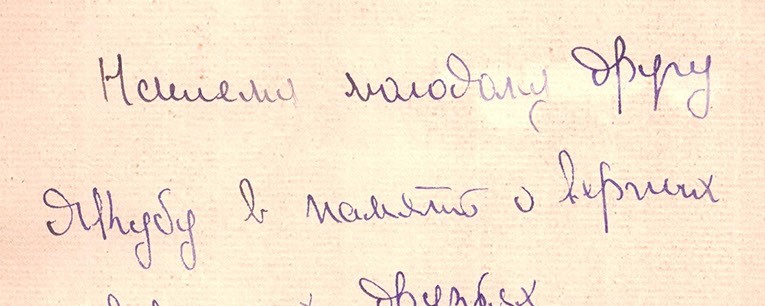 Нашему молодому другу
Якубу в память о верных
друзьях